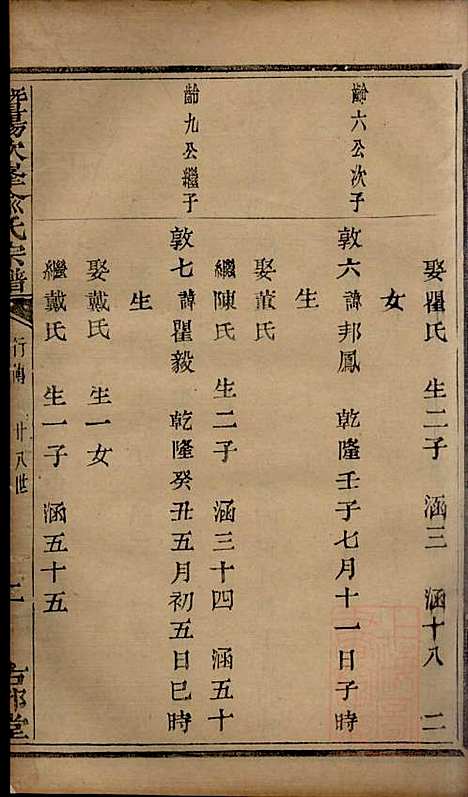 娶瞿氏 生二子 涵三 涵十八 二
女
齡六公次子
敦六 諱邦鳳 乾隆壬子七月十一日子時
生
娶黃氏
繼陳氏 生二子 涵三十四 涵五十
齡九公繼子
敦七 諱瞿毅 乾隆癸丑五月初五日巳時
生
娶戴氏 生一女
繼戴氏 生一子 涵五十五
暨陽次峯俞氏宗譜 行傳 廿八世